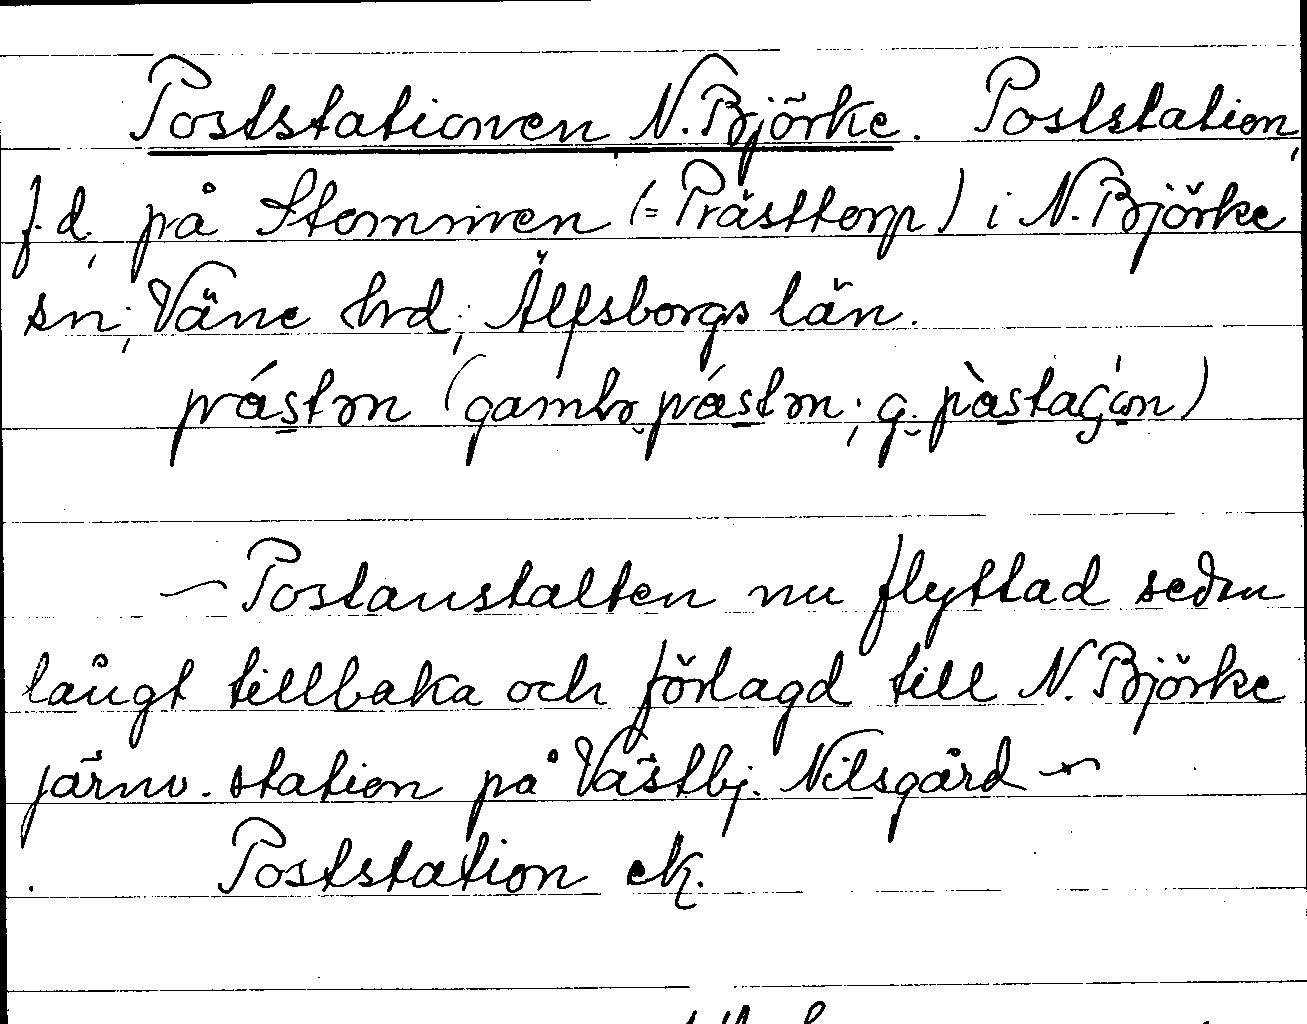 Poststationen N. Björke. Poststation,
f. d., på Stommen (= Prästtorp) i N. Björke
sn, Väne hrd, Älfsborgs län.
(gamla ; g.
— Postanstalten nu flyttad sedan
långt tillbaka och förlagd till N. Björke
järnv. station på Västbj. Nilsgård —
Poststation ek.